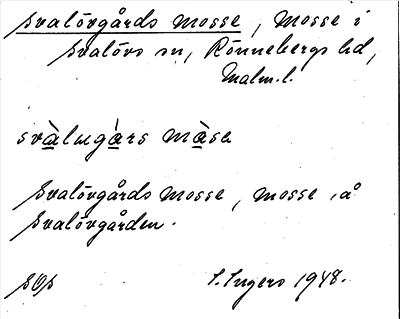 Svalövgårds mosse, Mosse i
Svalövs sn, Rönnebergs hd,
Malm.l.
svàlugàrs màse
Svalövgårds mosse, mosse å
Svalövgården.
S. Ingers 1948.